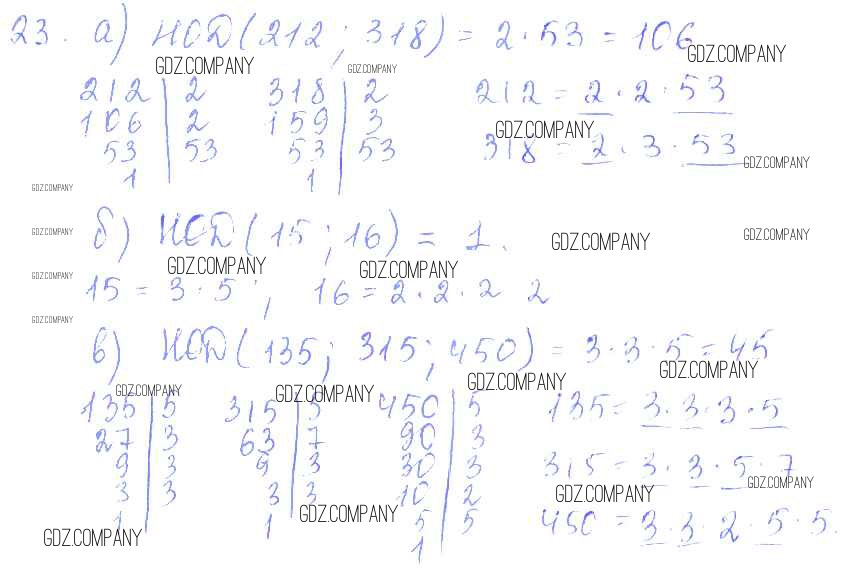 23. а) НОД(212; 318) = 2 · 53 = 106
GDZ.COMPANY GDZ.COMPANY GDZ.COMPANY
212 | 2 318 | 2 212 = 2 · 2 · 53
106 | 2 159 | 3 GDZ.COMPANY
53 | 53 53 | 53 318 = 2 · 3 · 53 GDZ.COMPANY
1 | 1 |
GDZ.COMPANY
б) НОД(15; 16) = 1.
GDZ.COMPANY GDZ.COMPANY GDZ.COMPANY
GDZ.COMPANY GDZ.COMPANY GDZ.COMPANY
15 = 3 · 5; 16 = 2 · 2 · 2 2
GDZ.COMPANY
в) НОД(135; 315; 450) = 3 · 3 · 5 = 45
GDZ.COMPANY GDZ.COMPANY GDZ.COMPANY GDZ.COMPANY
135 | 5 315 | 5 450 | 5 135 = 3 · 3 · 3 · 5
27 | 3 63 | 7 90 | 3
9 | 3 9 | 3 30 | 3 315 = 3 · 3 · 5 · 7
GDZ.COMPANY GDZ.COMPANY
3 | 3 3 | 3 10 | 2
GDZ.COMPANY
1 | 1 | 5 | 5 450 = 3 · 3 · 2 · 5 · 5.
GDZ.COMPANY
1